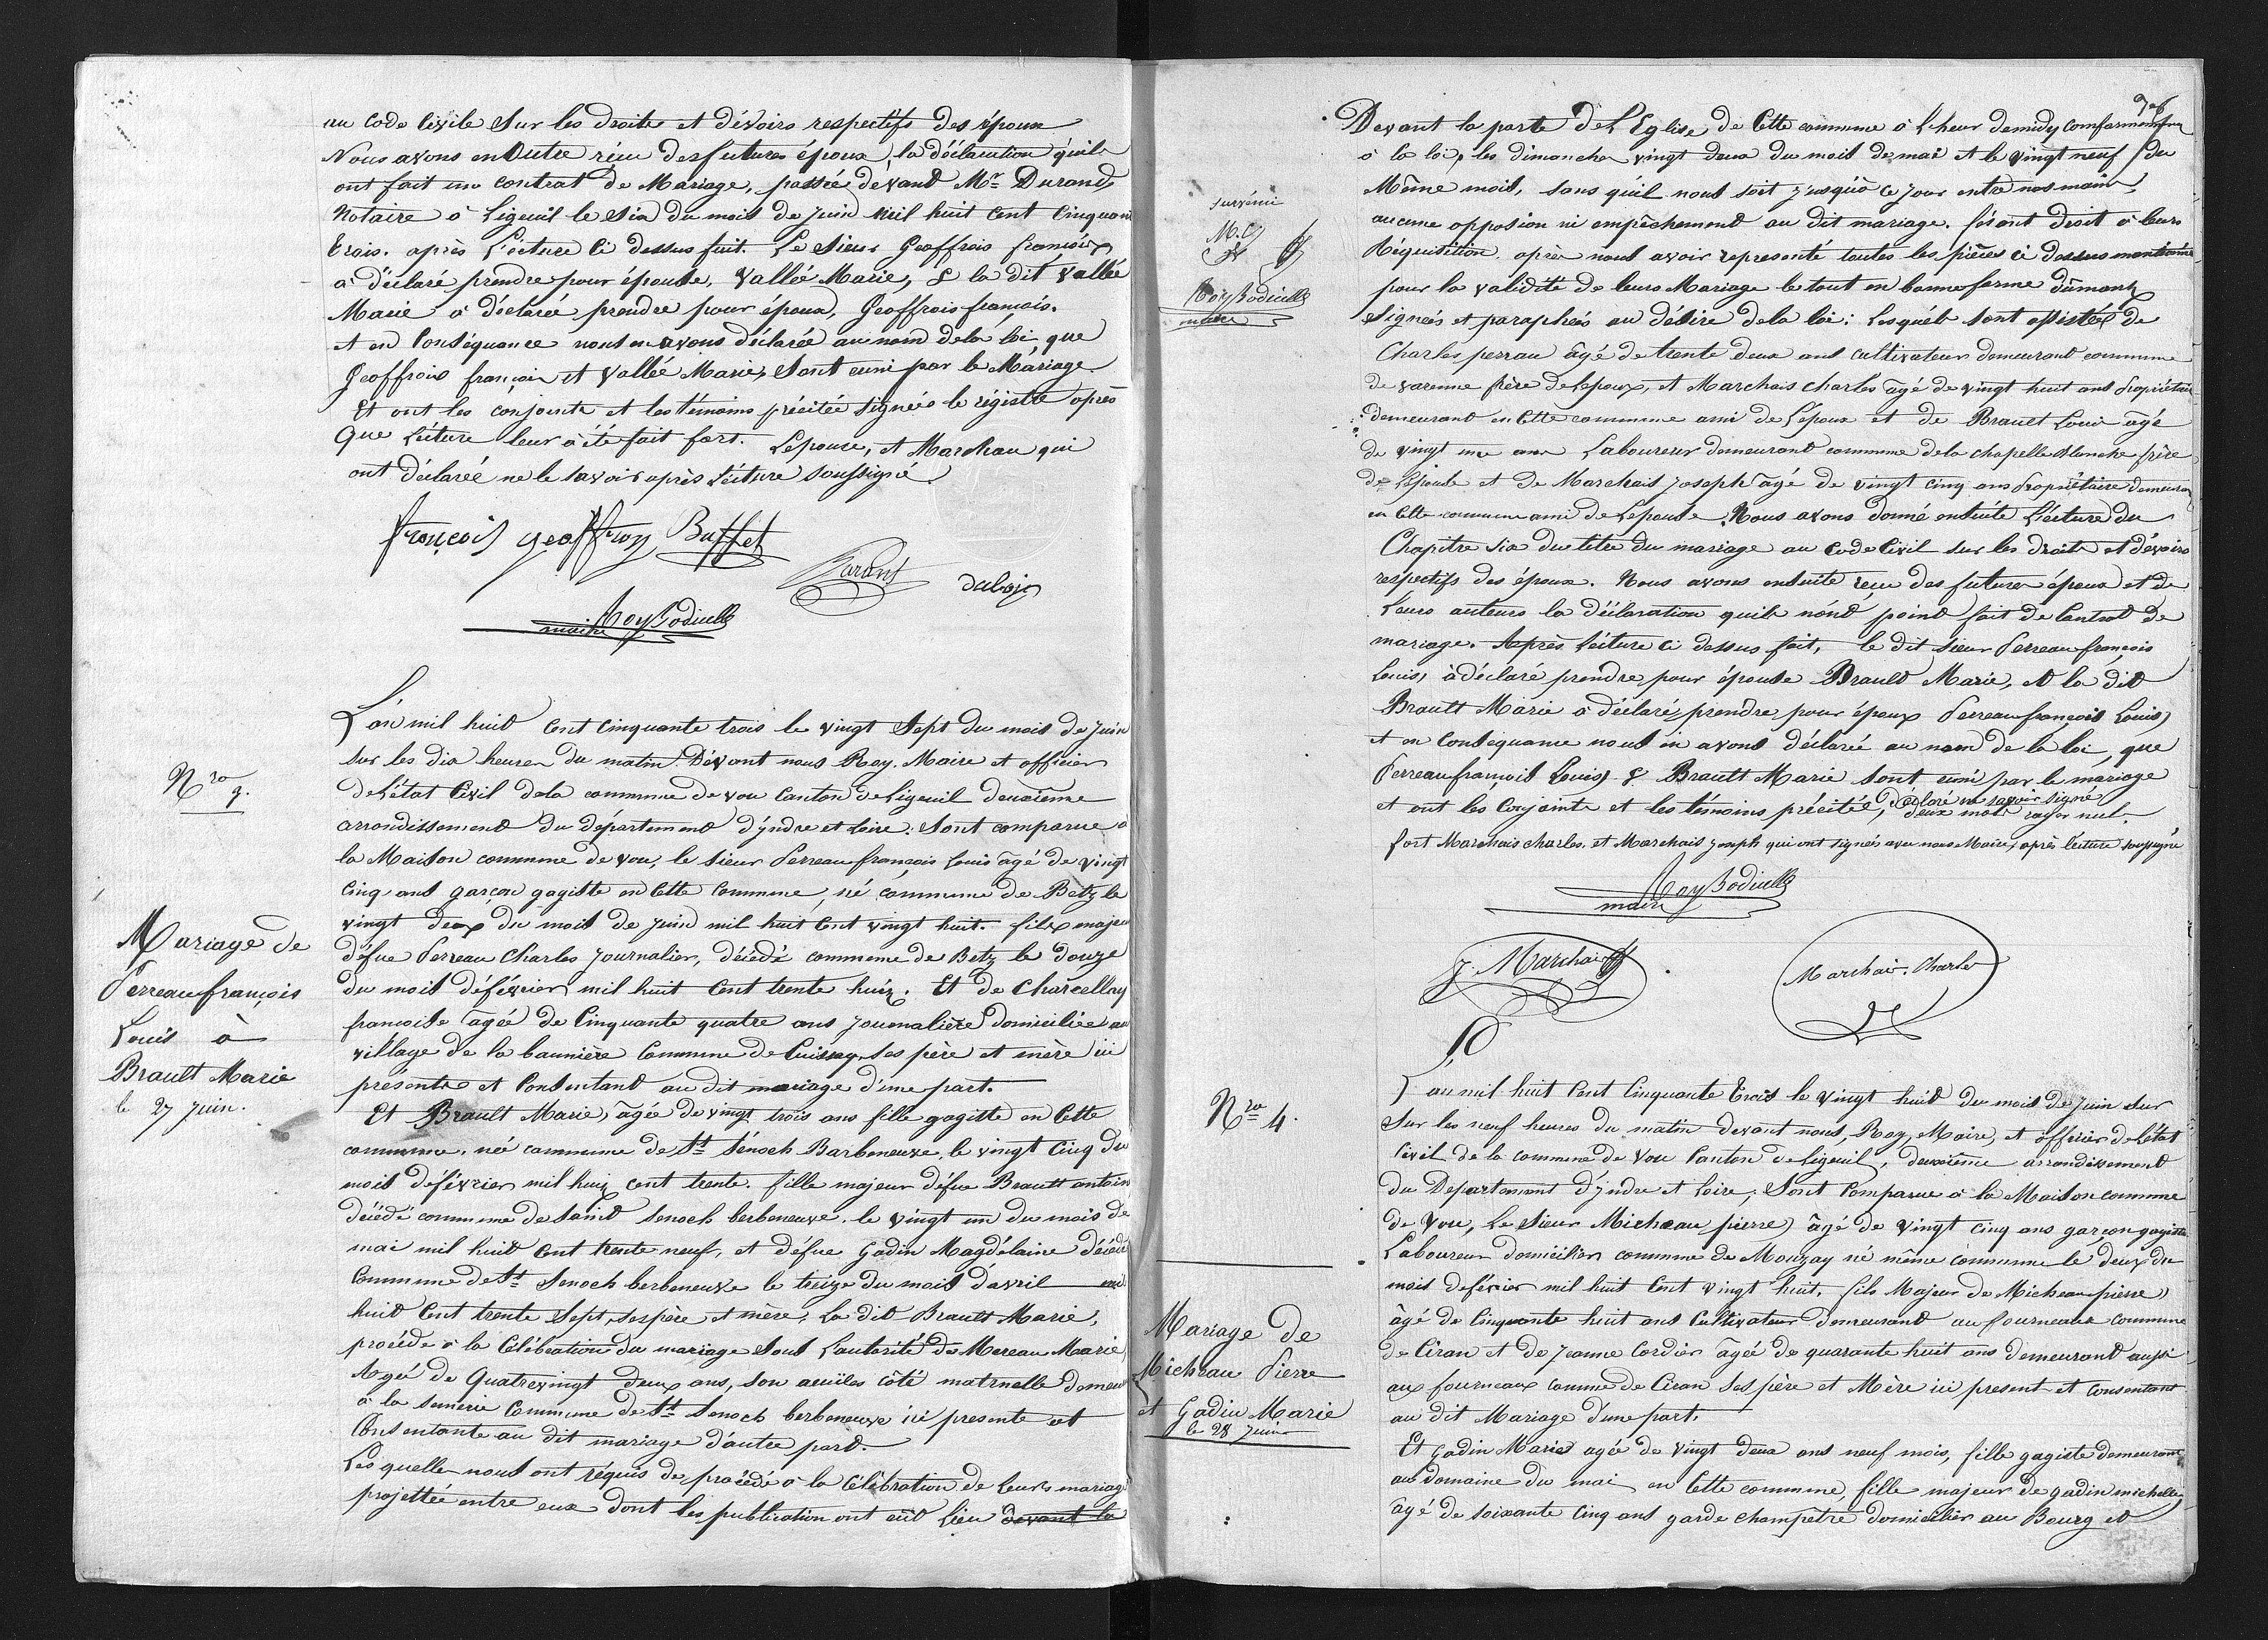 au code Civile Sur les droits et dévoirs respectifs des époux
Nous avons en Outre réçu des futures époux, la déclaration qu'ils
ont fait un contrat de Mariage, passée dévant Mr Durand
Notaire à Ligeuil le Six du mois de Juin Mil huit Cent Cinquante
trois. après L'écture ci dessus fait. Le Sieur Geoffrois françois
a déclaré prendre pour épouse, Vallée Marie, & la dit Vallée
Marie a déclarée prendre pour époux, Geoffrois françois.
et en Conséquance nous en avons déclarée au nom de la loi, que
Geoffrois françois et Vallée Marie, Sont uni par le Mariage
Et ont les conjoints et les témoins précitée Signées le régistre après
Que L'éture leur à été fait fort. Lépouse, et Marchau qui
ont déclarée ne le savoir après L'écture soussigné
françois geoffroy Buffet
durant
dubois
Roy Bodicelle
maire
Nro 9.
Mariage de
Perreau françois
Louis à
Brault Marie
le 27 Juin.
L'an mil huit Cent Cinquante trois le vingt Sept du mois de Juin
sur les dix heures du matin Dévant nous Roy, Maire et officier
de L'état Civil de la commune de vou Canton de Ligeuil deuxième
arrondissement du département d'yndre et Loire. Sont comparue à
la Maison commune de vou, le Sieur Perreau françois Louis âgé de vingt
Cinq ans garçon gagiste en Cette Commune, né commune de Betz le
vingt deux du mois de Juin mil huit Cent vingt huit. fils majeu
défue Perreau Charles Journalier, décédé commune de Betz le douze
du mois dé février mil huit Cent trente huit. Et de Charcellay
françoise âgée de Cinquante quatre ans Journalière domiciliée au
village de la bannière Commune de Cussay, ses père et mère ici
présente et Consentant au dit mariage d'une part.
Et Brault Marie, âgée de vingt trois ans fille gagiste en Cette
commune, née commune de St Sénoch Barbeneuve, le vingt Cinq du
mois dé février mil huit cent trente. fille majeur défue Brault antoine
décédé commune de Saint Senoch berbeneuve, le vingt un du mois de
mai mil huit Cent trente neuf, et défue Gadin Magdélaine décédé
Commune de St Senoch berbeneuve le treize du mois d'avril mil
huit Cent trente Sept, ses père et mère, La dit Brault Marie,
procéde à la Célébration du mariage Sous L'autorité de Mereau Marie
Agée de Quatrevingt deux ans, son aieules côté maternelle demeur
à la Commune de St Senoch berbeneuve ici presente et
Consentante au dit mariage d'autre part.
Les quelles nous ont réquis de procédé à la Célébration de leurs mariage
projettée entre eux dont les publication ont eût Lieu devant la
survénu
M. C
Roy Bodicelle
maire
Nro 4.
Mariage de
Micheau Pierre
et Gadin Marie
le 28 Juin
Devant la porte de L'Eglise de Cette commune à L'heur de midy comformement
à la loi, les dimanches vingt deux du mois de mai et le vingt neuf du
Même mois, sans qu'il nous soit jusqu'à ce jour entre nos mains,
aucune opposion ni empêchement au dit mariage. fésant droit à leurs
Réquisition. après nous avoir représenté toutes les pièces ci dessus montionné
pour la validité de leurs Mariage le tout en bonne forme dûment
Signées et paraphées au désire de la loi: Lesquels sont assistée de
Charles perrau âgé de trente deux ans cultivateur demeurant commune
de varenne frère de Lépoux, et Marchais Charles âgé de vingt huit ans Propriétaire
demeurant en Cette commune ami de Lépoux et de Brault Louis agé
de vingt une ans Laboureur demeurant commune de la chapelle blanche frère
de Lépouse et de Marchais Joseph âgé de vingt cinq ans Propriétaire demeuran
en Cette commune ami de Lépouse. Nous avons donné ensuite L'écture du
Chapitre Six du titre du mariage au Code Civil sur les droits et dévoirs
respectifs des époux. Nous avons ensuite reçu des futures époux et de
Leurs auteurs la déclaration qu'ils n'ont point fait de Contrat de
mariage. Après L'écture ci dessus fait, le dit sieur Perreau françois
Louis, à déclaré prendre pour épouse Brault Marie, et la dit
Brault Marie a déclaré prendre pour époux Perreau françois Louis,
et en Conséquance nous en avons déclarée au nom de la loi, que
Perreau françois Louis, & Brault Marie sont uni par le mariage
et ont les Conjoints et les témoins précitée, déclaré ne savoir signé deux mots rayer nul.
fort Marchais Charles, et Marchais Joseph qui ont signées avec nous Maire, après L'écture soussigné
Roy Bodicelle
maire
J. Marchais
Marchais. Charles
L'an mil huit Cent Cinquante trois le vingt huit du mois de Juin Sur
Sur les neuf heures du matin devant nous, Roy, Maire, et officier de L'état
Civil de la commune de Vou Canton de Ligeuil, deuxième arrondissement
du Departement d'yndre et Loire, Sont Comparue à la Maison commune
de Vou, Le Sieur Micheau pierre, âgé de vingt cinq ans garçon gagiste
Laboureur domicilier commune de Mouzay né même commune le deux du
mois de février mil huit Cent vingt huit, fils Majeur de Micheau pierre,
âgé de Cinquante huit ans Cultivateur demeurant au fourneaux commune
de Ciran et de Jeanne Cordier âgée de quarante huit ans demeurant aussi
aux fourneaux comme de Ciran Ses père et Mère ici present et consentant
au dit Mariage d'une part,
Et Gadin Marie agée de vingt deux ans neuf mois, fille gagiste demeurant
au domaine du mai en Cette commune, fille majeur de gadin michelle
âgé de soixante Cinq ans garde champêtre domicilier au Bourg et